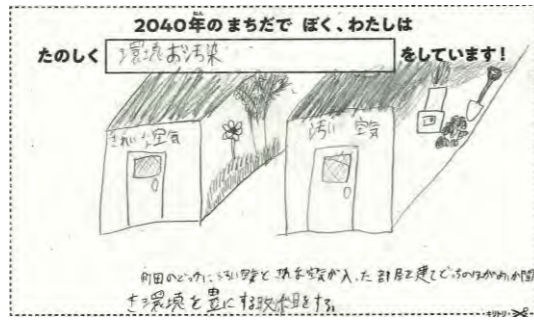 2040年のまちだで ぼく、わたしは
たのしく 環境お汚染 をしています!
きれいな空気
汚い 空気
町田のどっかに汚い空気と きれいな空気が入った部屋を建てどっちのほうが
環境を豊にする役割をする。
キリトリ